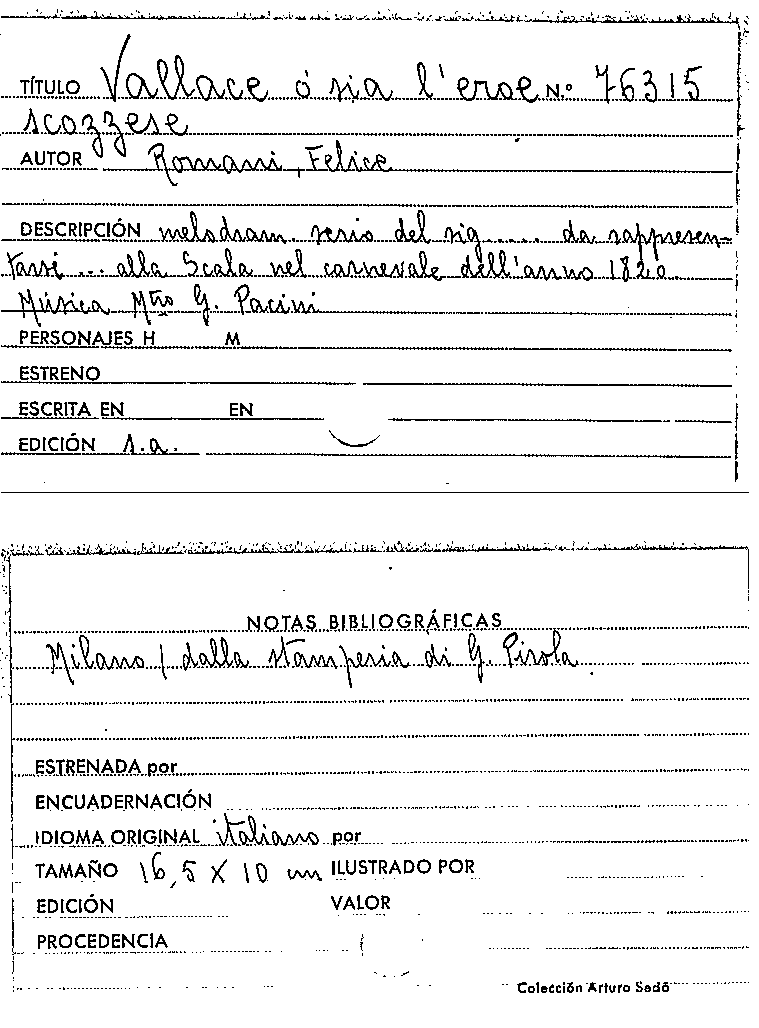 TÍTULO Vallace ó sia l'eroe N.º 76315
scozzese
AUTOR Romani, Felice
DESCRIPCIÓN melodram. serio del sig..... da rappresen-
tarsi ... alla Scala nel carnevale dell'anno 1820.
Música Mtro G. Pacini
PERSONAJES H M
ESTRENO
ESCRITA EN EN
EDICIÓN s.a.
NOTAS BIBLIOGRÁFICAS
Milano / dalla stamperia di G. Pirola.
ESTRENADA por
ENCUADERNACIÓN
IDIOMA ORIGINAL italiano por
TAMAÑO 16,5 X 10 cm ILUSTRADO POR
EDICIÓN VALOR
PROCEDENCIA
Colección Arturo Sedó